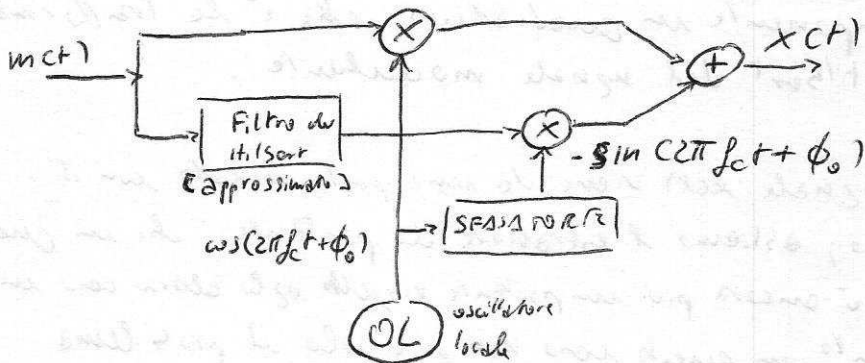 m(t)
×
+
x(t)
Filtro di
Hilbert
[approssimato]
×
- sin (2π f_c t + φ_0)
cos(2π f_c t + φ_0)
SFASATORE
OL
oscillatore
locale